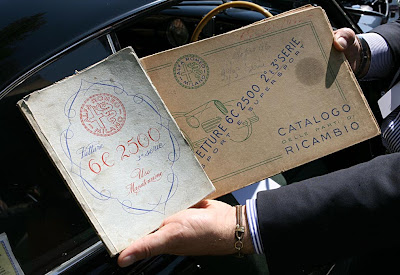 Vetture
6C 2500
3ª serie
Uso
VETTURE 6C 2500 2ª 3ª SERIE
SPORT E SUPERSPORT
CATALOGO
DELLE PARTI DI
RICAMBIO